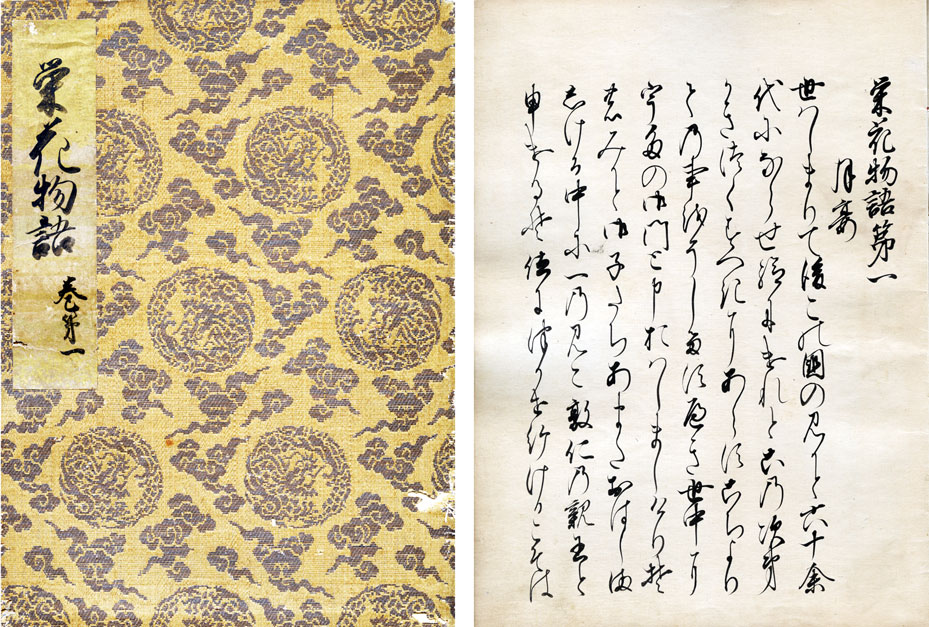 栄花物語
巻第一
栄花物語第一
月宴
世はしまりて後この國の見かと六十余
代にならせ給にけれとこの次第
かきつくすへきにあらすこちより
ての事をそしるすへき世中に
宇多の御門と申おはしましけりそ
のみかと御子たちあまたおはしま
しける中に一の見こ敦仁の親王と
申けるそ位につかせ給けるこそは